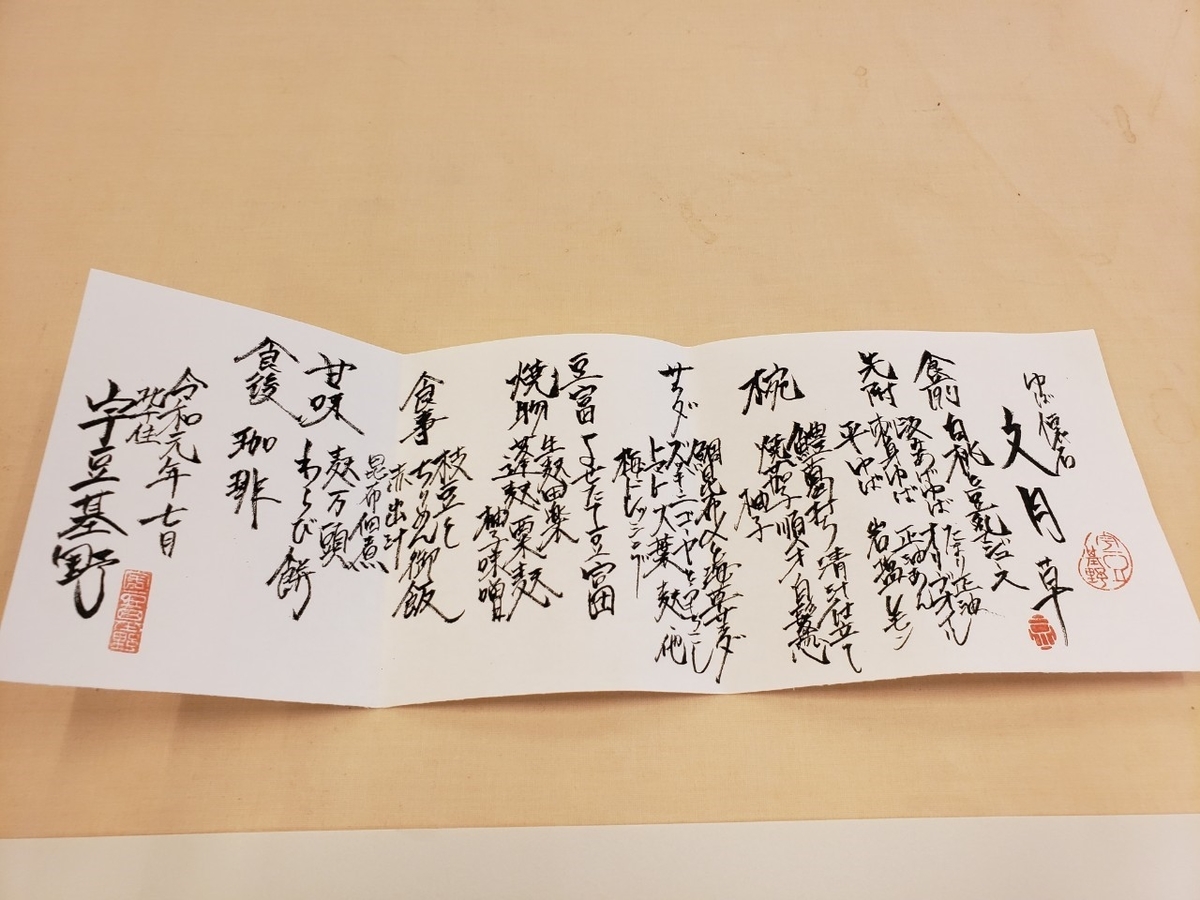 ゆば懐石
文月草
食前 白桃と豆乳ジュース
先附 汲みあげゆば たまり正油 オリーブオイル
刺身ゆば 正油あん
平ゆば 岩塩 レモン
椀 鱧葛打ち 清汁仕立て
焼茄子 順才 白髪葱
柚子
サラダ 鯛昆布〆と海草サラダ
ズッキーニ ゴーヤ とうもろこし
トマト 大葉 麸 他
梅ドレッシング
豆富 よせたて豆富
焼物 生麸田楽
蓬麸 粟麸
柚子味噌
食事 枝豆と
ちりめん御飯
赤出汁
昆布佃煮
甘味 麸万頭
わらび餅
食後 珈琲
令和元年七月
宇豆基野